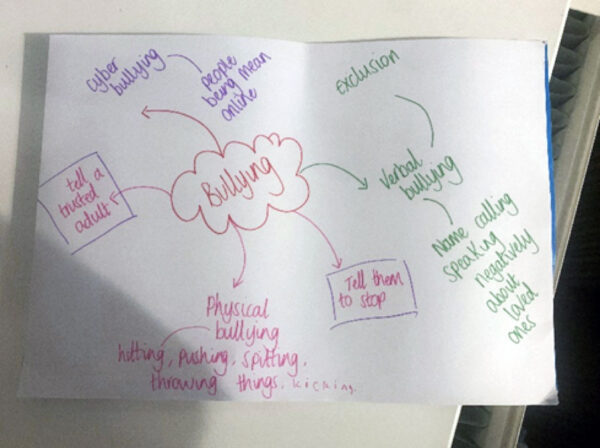 cyber
bullying
people
being mean
online
exclusion
Bullying
Verbal
bullying
Name calling
speaking
negatively
about
loved
ones
tell a
trusted
adult
Tell them
to stop
Physical
bullying
hitting, pushing, spitting,
throwing things, kicking.